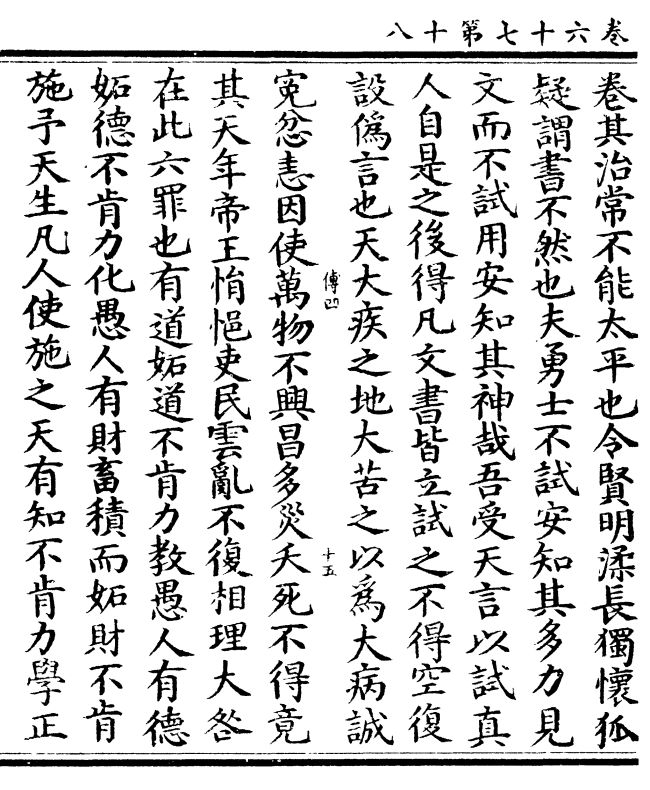 卷六十七第十八
卷其治常不能太平也令賢明渘長獨懷狐
疑謂書不然也夫勇士不試安知其多力見
文而不試用安知其神哉吾受天言以試真
人自是之後得凡文書皆立試之不得空復
設僞言也天大疾之地大苦之以爲大病誠
傅凹
十五
寃忿恚因使萬物不興昌多災夭死不得竟
其天年帝王悁悒吏民雲亂不復相理大咎
在此六罪也有道妬道不肯力教愚人有德
妬德不肯力化愚人有財畜積而妬財不肯
施予天生凡人使施之天有知不肯力學正